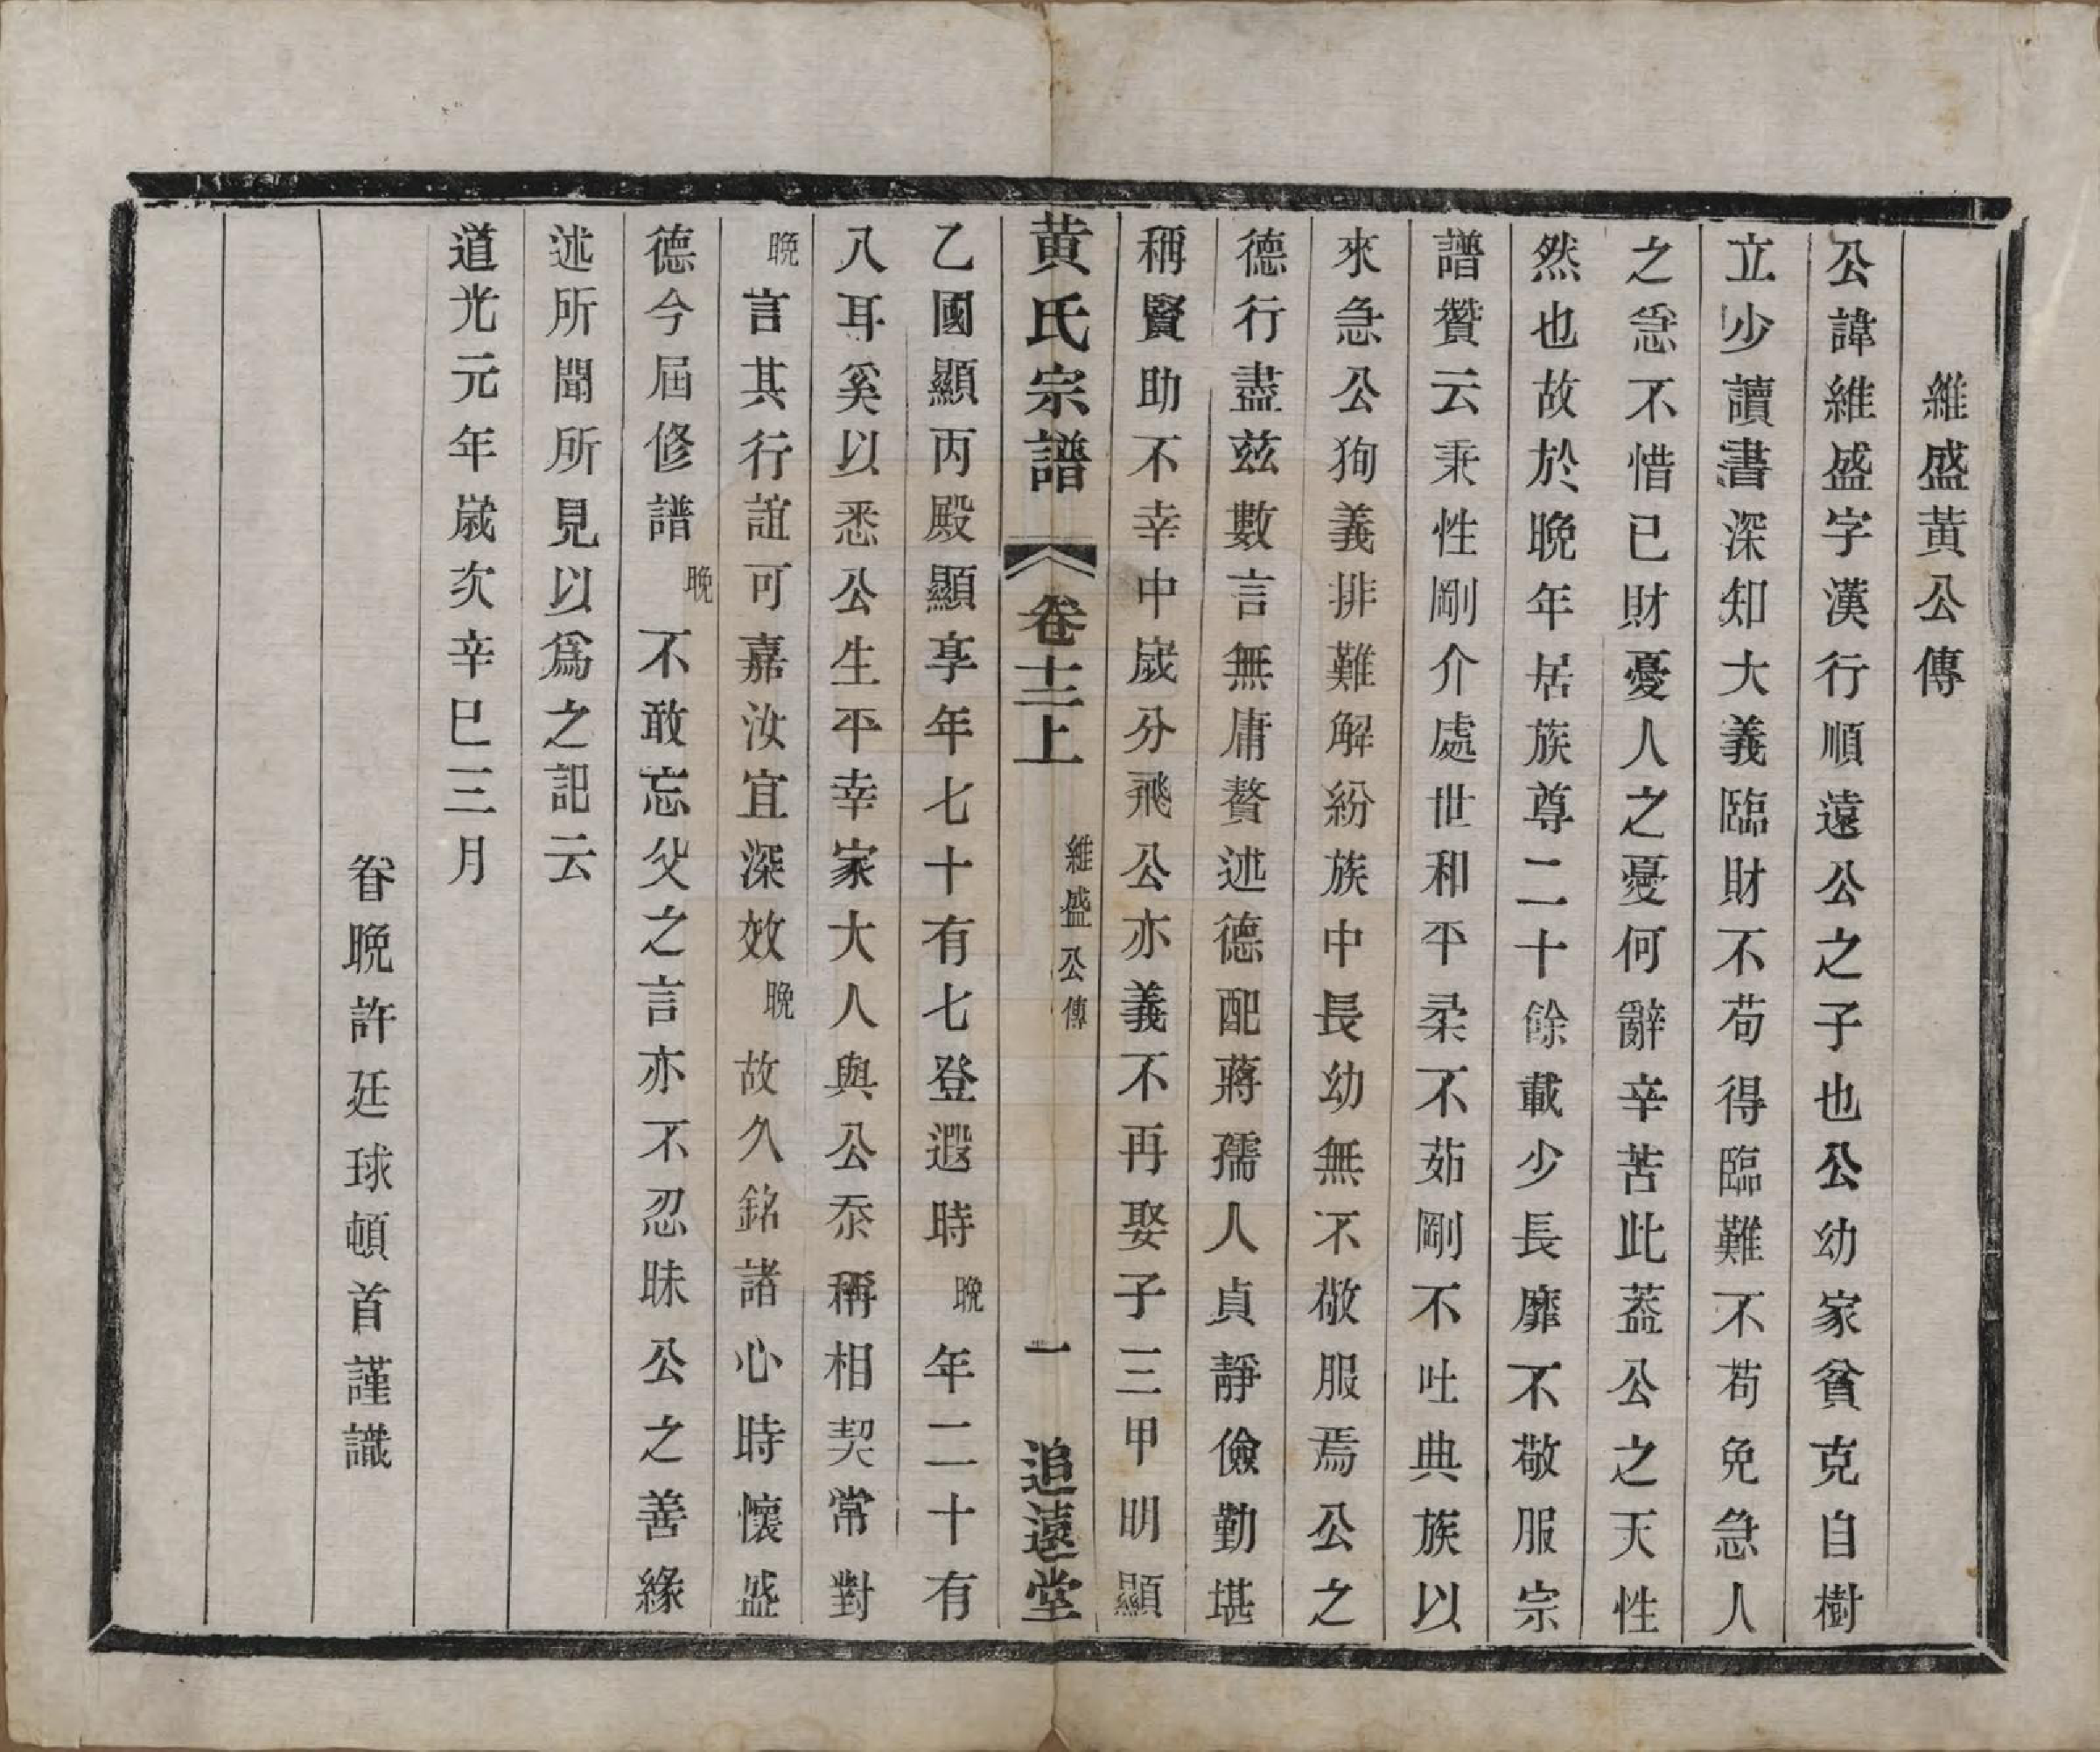 維盛黃公傳
公諱維盛字漢行順遠公之子也公幼家貧克自樹
立少讀書深知大義臨財不苟得臨難不苟免急人
之急不惜已財憂人之憂何辭辛苦此葢公之天性
然也故於晚年居族尊二十餘載少長靡不敬服宗
譜贊云秉性剛介處世和平柔不茹剛不吐典族以
來急公狥義排難解紛族中長幼無不敬服焉公之
德行盡茲數言無庸贅述德配蔣孺人貞靜儉勤堪
稱賢助不幸中嵗分飛公亦義不再娶子三甲明顯
黄氏宗譜 卷十三上 維盛公傳 一 追遠堂
乙國顯丙殿顯享年七十有七登遐時晚年二十有
八耳奚以悉公生平幸家大人與公忝稱相契常對
晚言其行誼可嘉汝宜深效晚故久銘諸心時懷盛
德今屆修譜晚不敢忘父之言亦不忍昧公之善緣
述所聞所見以爲之記云
道光元年嵗次辛巳三月
眷晚許廷球頓首謹識